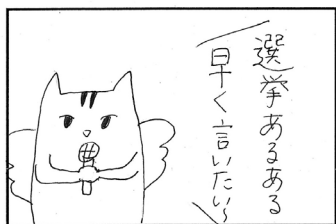 選挙あるある
早く言いたい〜